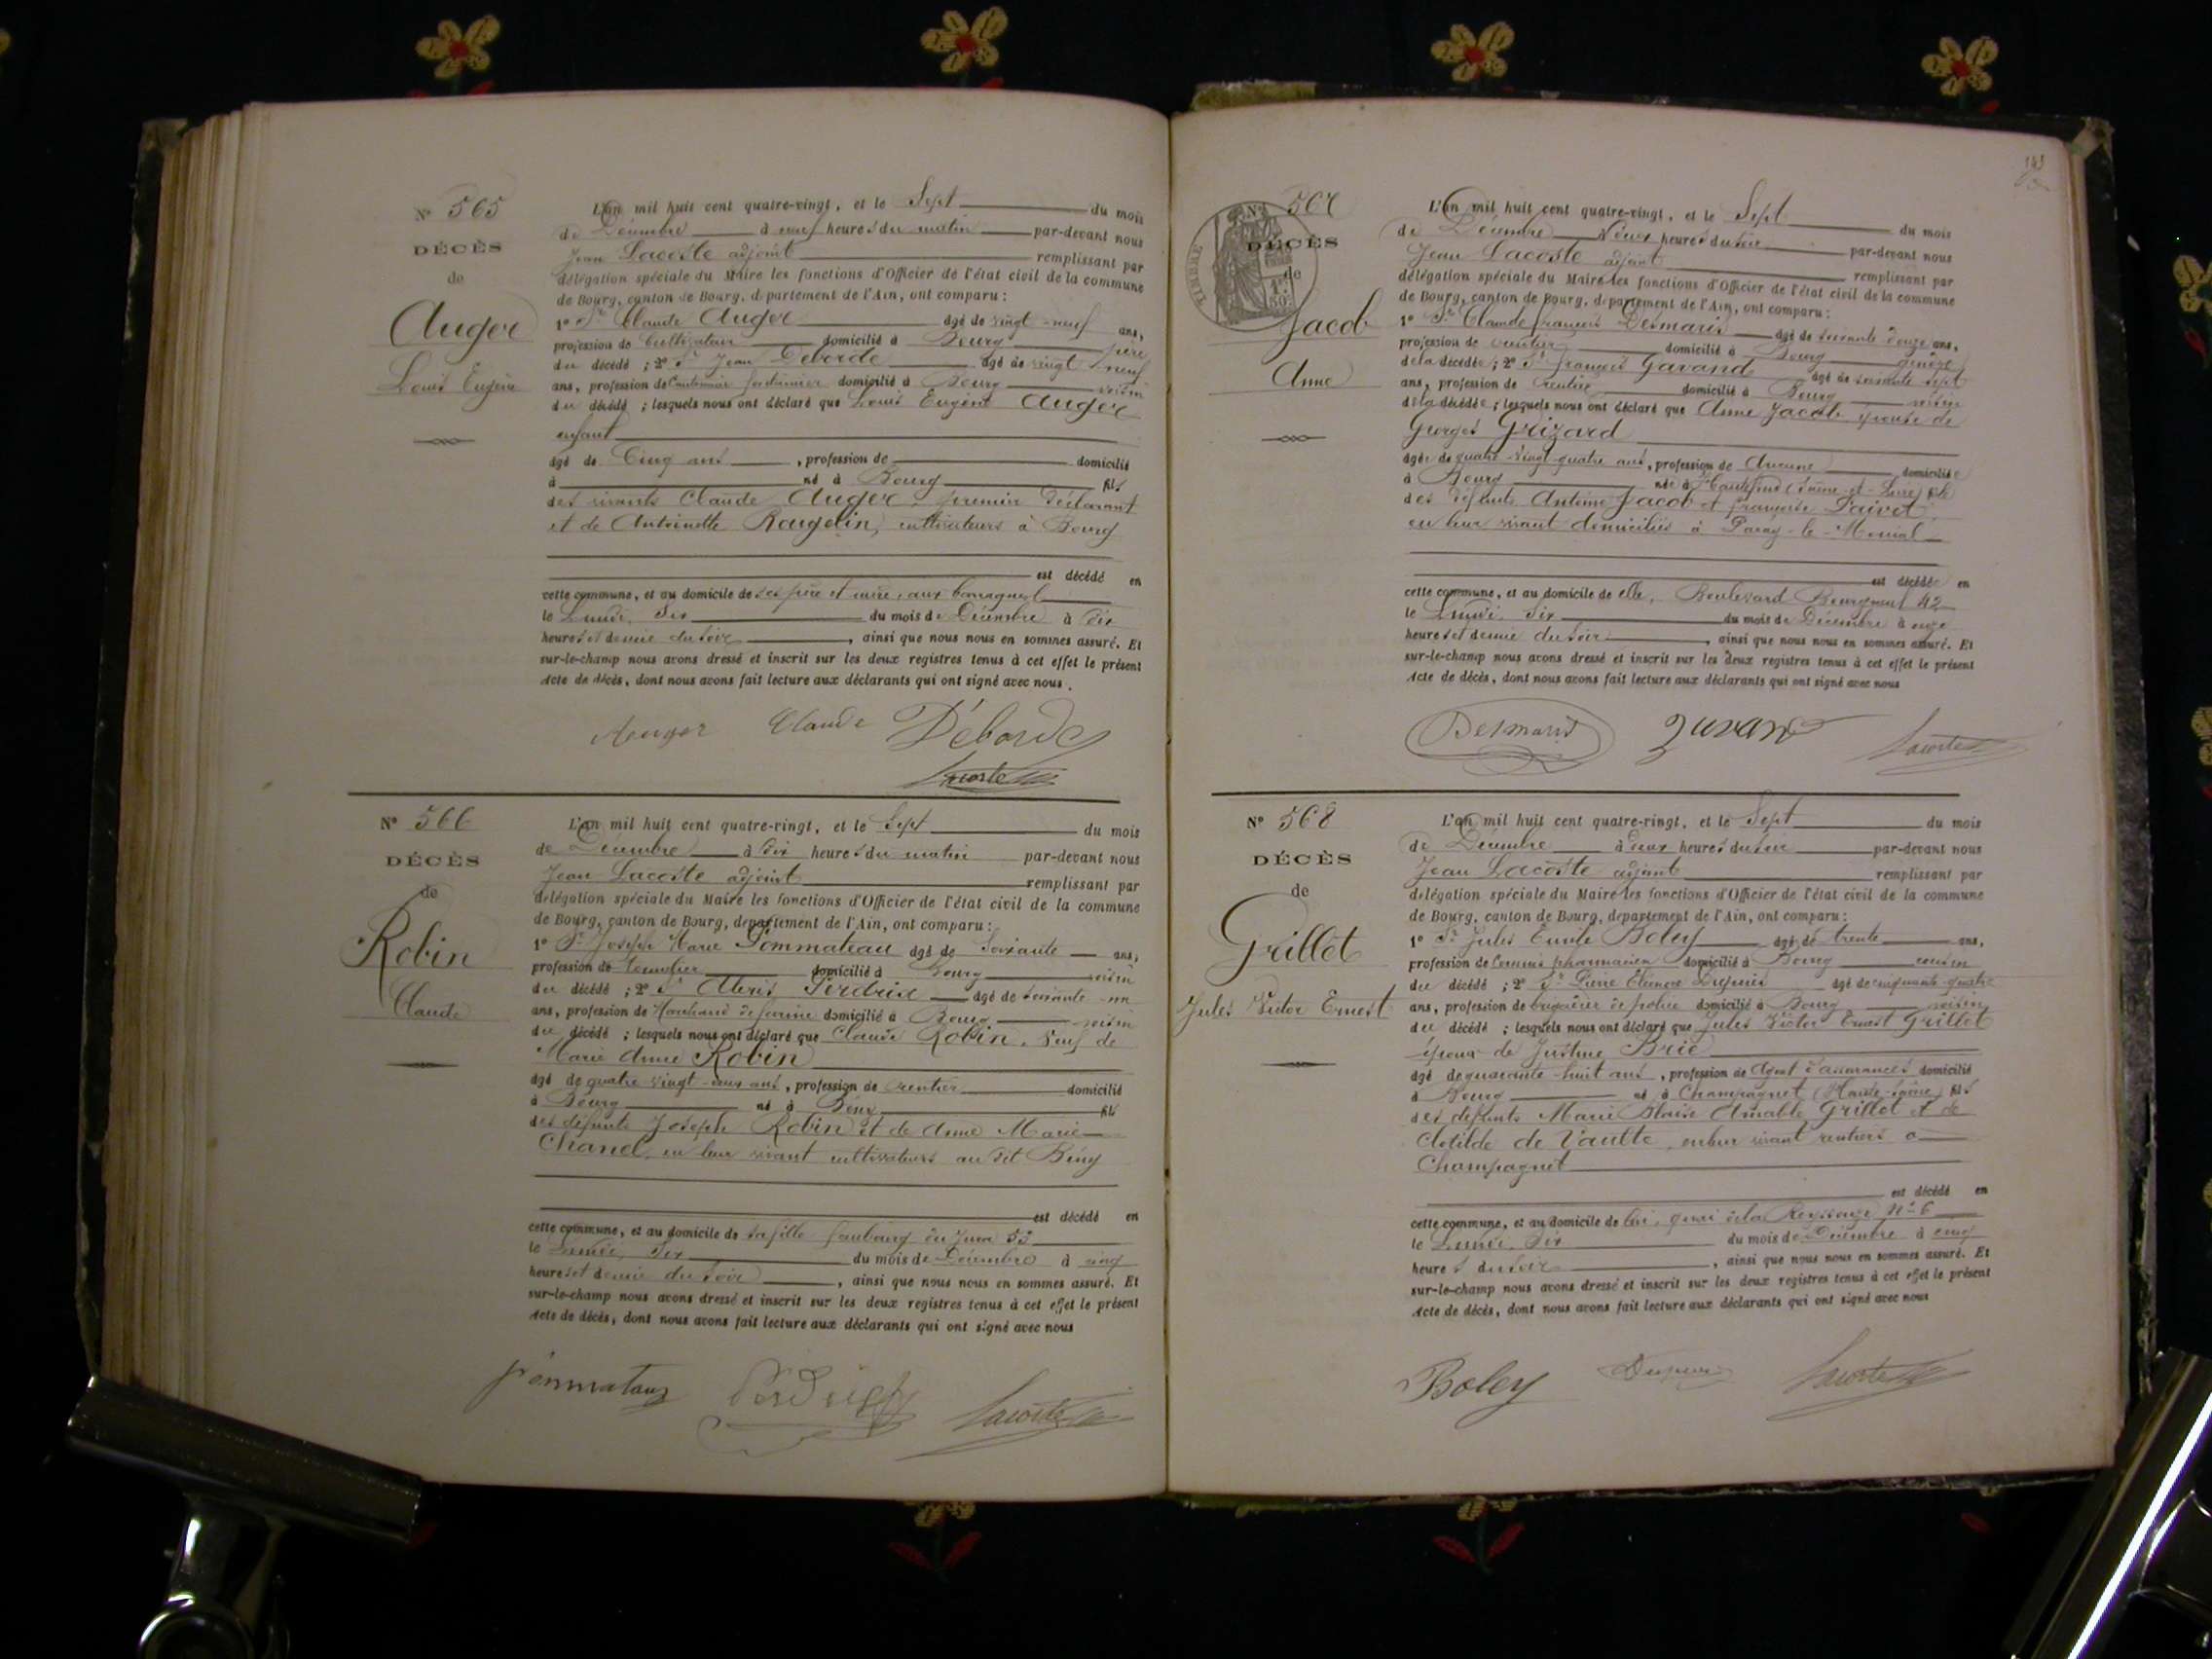 N° 565
DÉCÈS
de
Auger
Louis Eugène
L'an mil huit cent quatre-vingt, et le Sept du mois
de Décembre à neuf heures du matin par-devant nous
Jean Lacoste adjoint remplissant par
délégation spéciale du Maire les fonctions d'Officier de l'état civil de la commune
de Bourg, canton de Bourg, département de l'Ain, ont comparu :
1° Sr Claude Auger âgé de vingt-neuf ans,
profession de Cultivateur domicilié à Bourg père
du décédé ; 2° Sr Jean Deborde âgé de vingt neuf
ans, profession de Cantonnier domicilié à Bourg voisin
du décédé ; lesquels nous ont déclaré que Louis Eugène Auger
enfant
âgé de Cinq ans, profession de domicilié
à né à Bourg fils
des vivants Claude Auger, premier déclarant
et de Antoinette Rougelin, cultivateurs à Bourg
est décédé en
cette commune, et au domicile de ses père et mère, aux
le Lundi Six du mois de Décembre à dix
heures et demie du soir, ainsi que nous nous en sommes assuré. Et
sur-le-champ nous avons dressé et inscrit sur les deux registres tenus à cet effet le présent
Acte de décès, dont nous avons fait lecture aux déclarants qui ont signé avec nous.
Auger Claude Déborde
Lacoste
N° 566
DÉCÈS
de
Robin
Claude
L'an mil huit cent quatre-vingt, et le Sept du mois
de Décembre à dix heures du matin par-devant nous
Jean Lacoste adjoint remplissant par
délégation spéciale du Maire les fonctions d'Officier de l'état civil de la commune
de Bourg, canton de Bourg, département de l'Ain, ont comparu :
1° Sr Joseph Marie Pommateau âgé de Soixante ans,
profession de tonnelier domicilié à Bourg voisin
du décédé ; 2° Sr Alexis Perdrix âgé de soixante-un
ans, profession de Marchand de farine domicilié à Bourg voisin
du décédé ; lesquels nous ont déclaré que Claude Robin, veuf de
Marie Anne Robin
âgé de quatre vingt ans, profession de rentier domicilié
à Bourg né à Bény fils
des défunts Joseph Robin et de Anne Marie
Chanel, en leur vivant cultivateurs au dit Bény
est décédé en
cette commune, et au domicile de sa fille faubourg du Jura 53
le Lundi, Six du mois de Décembre à cinq
heures et demie du soir, ainsi que nous nous en sommes assuré. Et
sur-le-champ nous avons dressé et inscrit sur les deux registres tenus à cet effet le présent
Acte de décès, dont nous avons fait lecture aux déclarants qui ont signé avec nous
Perdrix Lacoste
TIMBRE
N° 567
DÉCÈS
de
Jacob
Anne
L'an mil huit cent quatre-vingt, et le Sept du mois
de Décembre à deux heures du soir par-devant nous
Jean Lacoste adjoint remplissant par
délégation spéciale du Maire les fonctions d'Officier de l'état civil de la commune
de Bourg, canton de Bourg, département de l'Ain, ont comparu :
1° Sr Claude françois Desmaris âgé de soixante douze ans,
profession de rentier domicilié à Bourg gendre
de la décédée ; 2° Sr françois Gavand âgé de soixante sept
ans, profession de rentier domicilié à Bourg voisin
de la décédée ; lesquels nous ont déclaré que Anne Jacob épouse de
Georges Grizard
âgée de quatre-vingt-quatre ans, profession de Aucune domiciliée
à Bourg née à (Saône-et-Loire) fille
des défunts Antoine Jacob et françoise
en leur vivant domiciliés à Paray-le-Monial
est décédée en
cette commune, et au domicile de elle, Boulevard Bourgmayer 42
le Lundi Six du mois de Décembre à onze
heures et demie du soir, ainsi que nous nous en sommes assuré. Et
sur-le-champ nous avons dressé et inscrit sur les deux registres tenus à cet effet le présent
Acte de décès, dont nous avons fait lecture aux déclarants qui ont signé avec nous
Desmaris Gavand Lacoste
N° 568
DÉCÈS
de
Grillet
Jules Victor Ernest
L'an mil huit cent quatre-vingt, et le Sept du mois
de Décembre à deux heures du soir par-devant nous
Jean Lacoste adjoint remplissant par
délégation spéciale du Maire les fonctions d'Officier de l'état civil de la commune
de Bourg, canton de Bourg, département de l'Ain, ont comparu :
1° Sr Jules Emile Boley âgé de trente ans,
profession de Commis pharmacien domicilié à Bourg cousin
du décédé ; 2° Sr Pierre Eléonore Dupuis âgé de cinquante-quatre
ans, profession de brigadier de police domicilié à Bourg voisin
du décédé ; lesquels nous ont déclaré que Jules Victor Ernest Grillet
époux de Justine Brié
âgé de quarante-huit ans, profession de Agent d'assurances domicilié
à Bourg né à Champagney (Haute-Saône) fils
des défunts Marie Blaise Amable Grillet et de
Clotilde de Vaulte, en leur vivant rentiers à
Champagney
est décédé en
cette commune, et au domicile de lui, quai de la Reyssouze N° 6
le Lundi, Six du mois de Décembre à cinq
heures du soir, ainsi que nous nous en sommes assuré. Et
sur-le-champ nous avons dressé et inscrit sur les deux registres tenus à cet effet le présent
Acte de décès, dont nous avons fait lecture aux déclarants qui ont signé avec nous
Boley Dupuis Lacoste